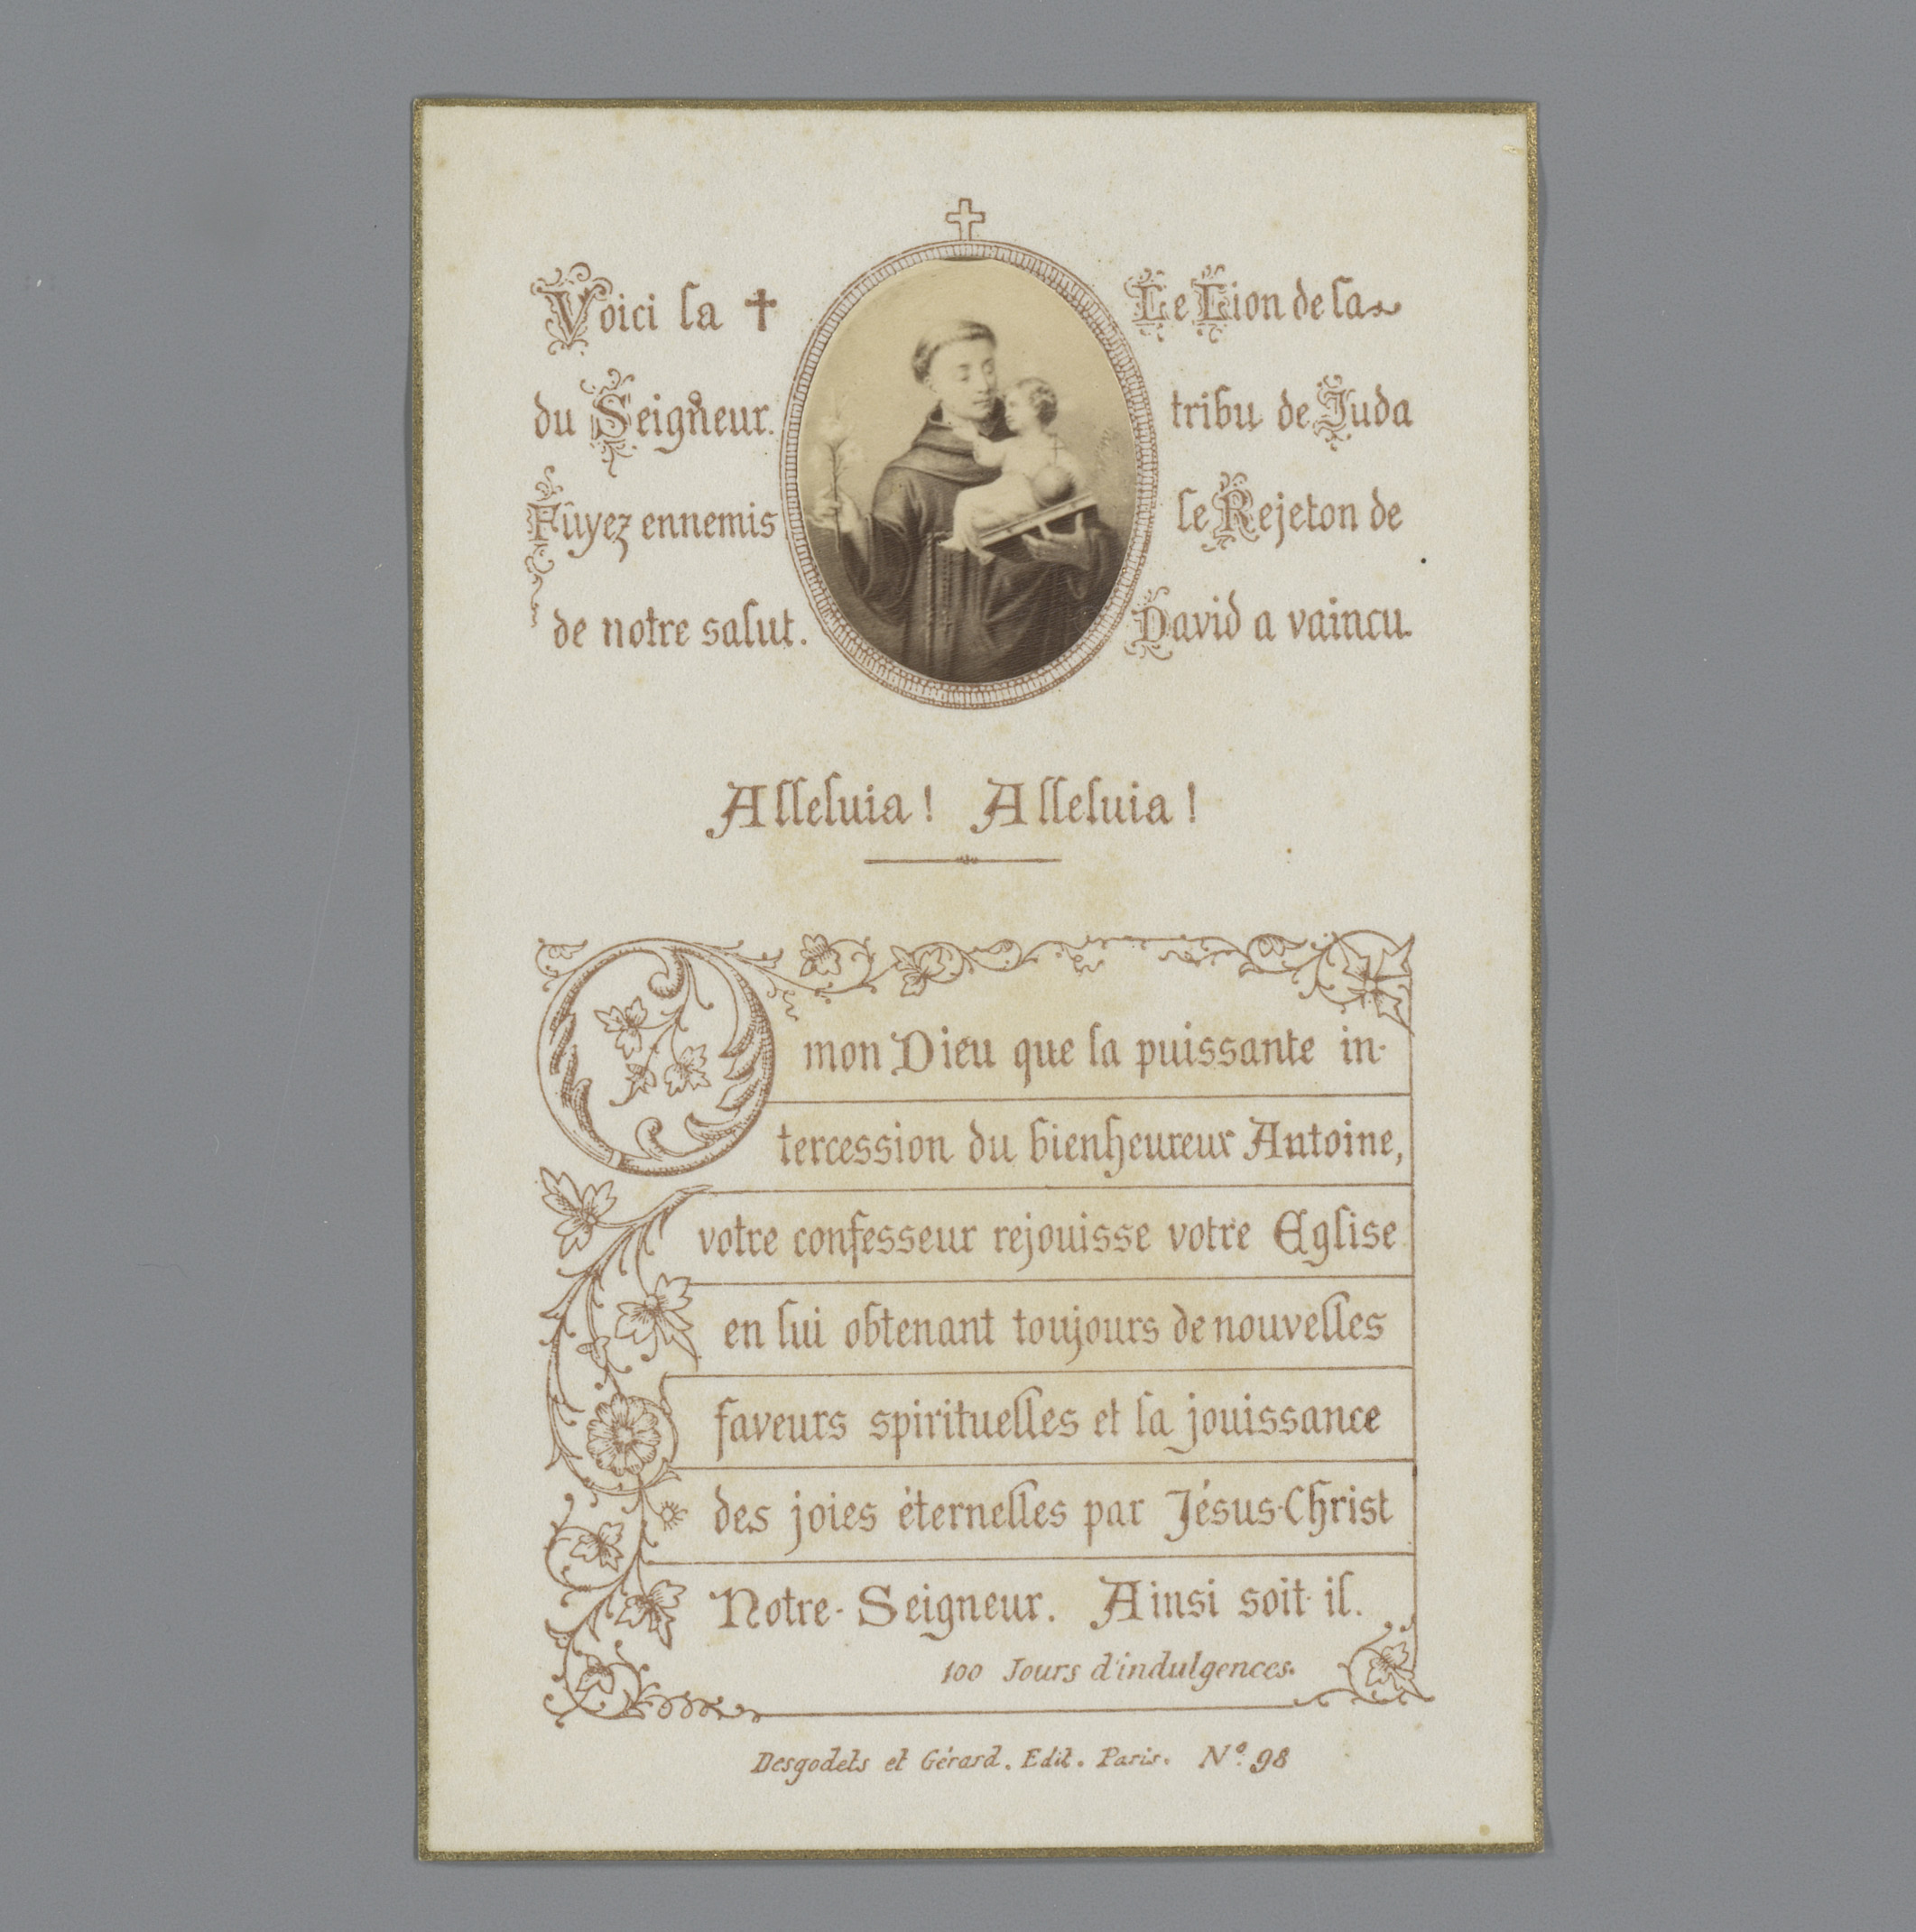 Voici la ✝
du Seigneur.
Fuyez ennemis
de notre salut.
Le Lion de la
tribu de Juda
le Rejeton de
David a vaincu.
Alleluia ! Alleluia !
O mon Dieu que la puissante in-
tercession du bienheureux Antoine,
votre confesseur rejouisse votre Eglise
en lui obtenant toujours de nouvelles
faveurs spirituelles et la jouissance
des joies éternelles par Jésus-Christ
Notre-Seigneur. Ainsi soit-il.
100 Jours d'indulgences.
Desgodets et Gérard. Edit. Paris. Nº 98